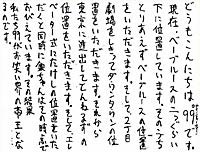 どうもこんにちは。99です。
現在、ベーブルースの二つぐらい
下に位置しています。その2つ
とりあえずベーブルースの位置
をいただきます。そして2丁目
劇場をしょってダウンタウンの位
置をいただきます。それから
東京に進出してとんねるず
位置をいただきます。そして、エレ
ベーター式にたけしさんの位置をいた
だくと同時に鶴ちゃんはその時点で
たいています。その結果
私たち99がお笑い界の帝王とな